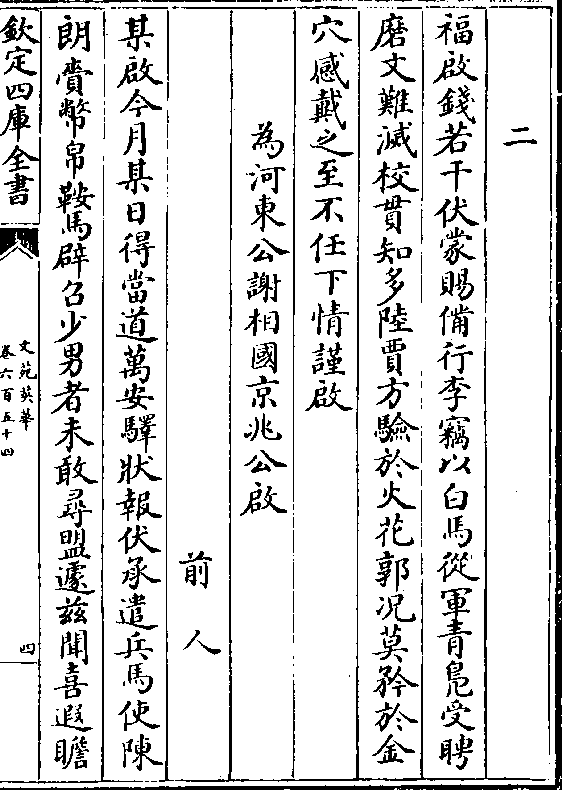 二
福啟錢若干伏蒙賜備行李竊以白馬從軍青鳬受聘
磨文難滅校貫知多陸賈方驗於火花郭况莫矜於金
穴感戴之至不任下情謹啟
為河東公謝相國京兆公啟
前人
某啟今月某日得當道萬安驛狀報伏承遣兵馬使陳
朗賫幣帛鞍馬辟召少男者未敢尋盟遽兹聞喜遐瞻
欽定四庫全書
文苑英華
卷六百五十四
四